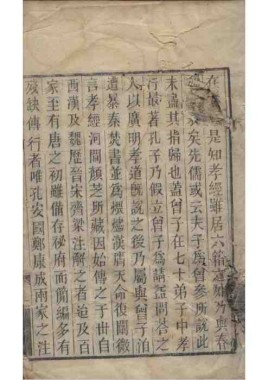 在是知孝經雖居六籍之外乃與春
矣先儒或云夫子爲曾參所說此
未盡其指歸也蓋曾子在七十弟子中孝
行最著孔子乃假立曾子爲請益問答之
人以廣明孝道既說之後乃屬與曾子洎
遭暴秦焚書並爲煨燼漢膺天命復闡微
言孝經河間顏芝所藏因始傳之于世自
西漢及魏歷晉宋齊梁注解之者迨及百
家至有唐之初雖備存祕府而簡編多有
殘缺傳行者唯孔安國鄭康成兩家之注